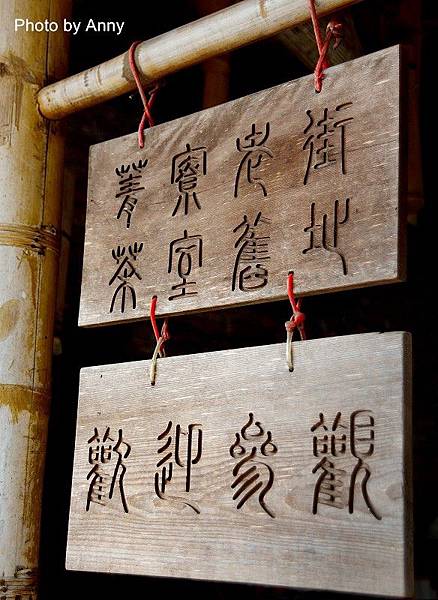 Photo by Anny
菁寮老街
茶室舊地
歡迎參觀